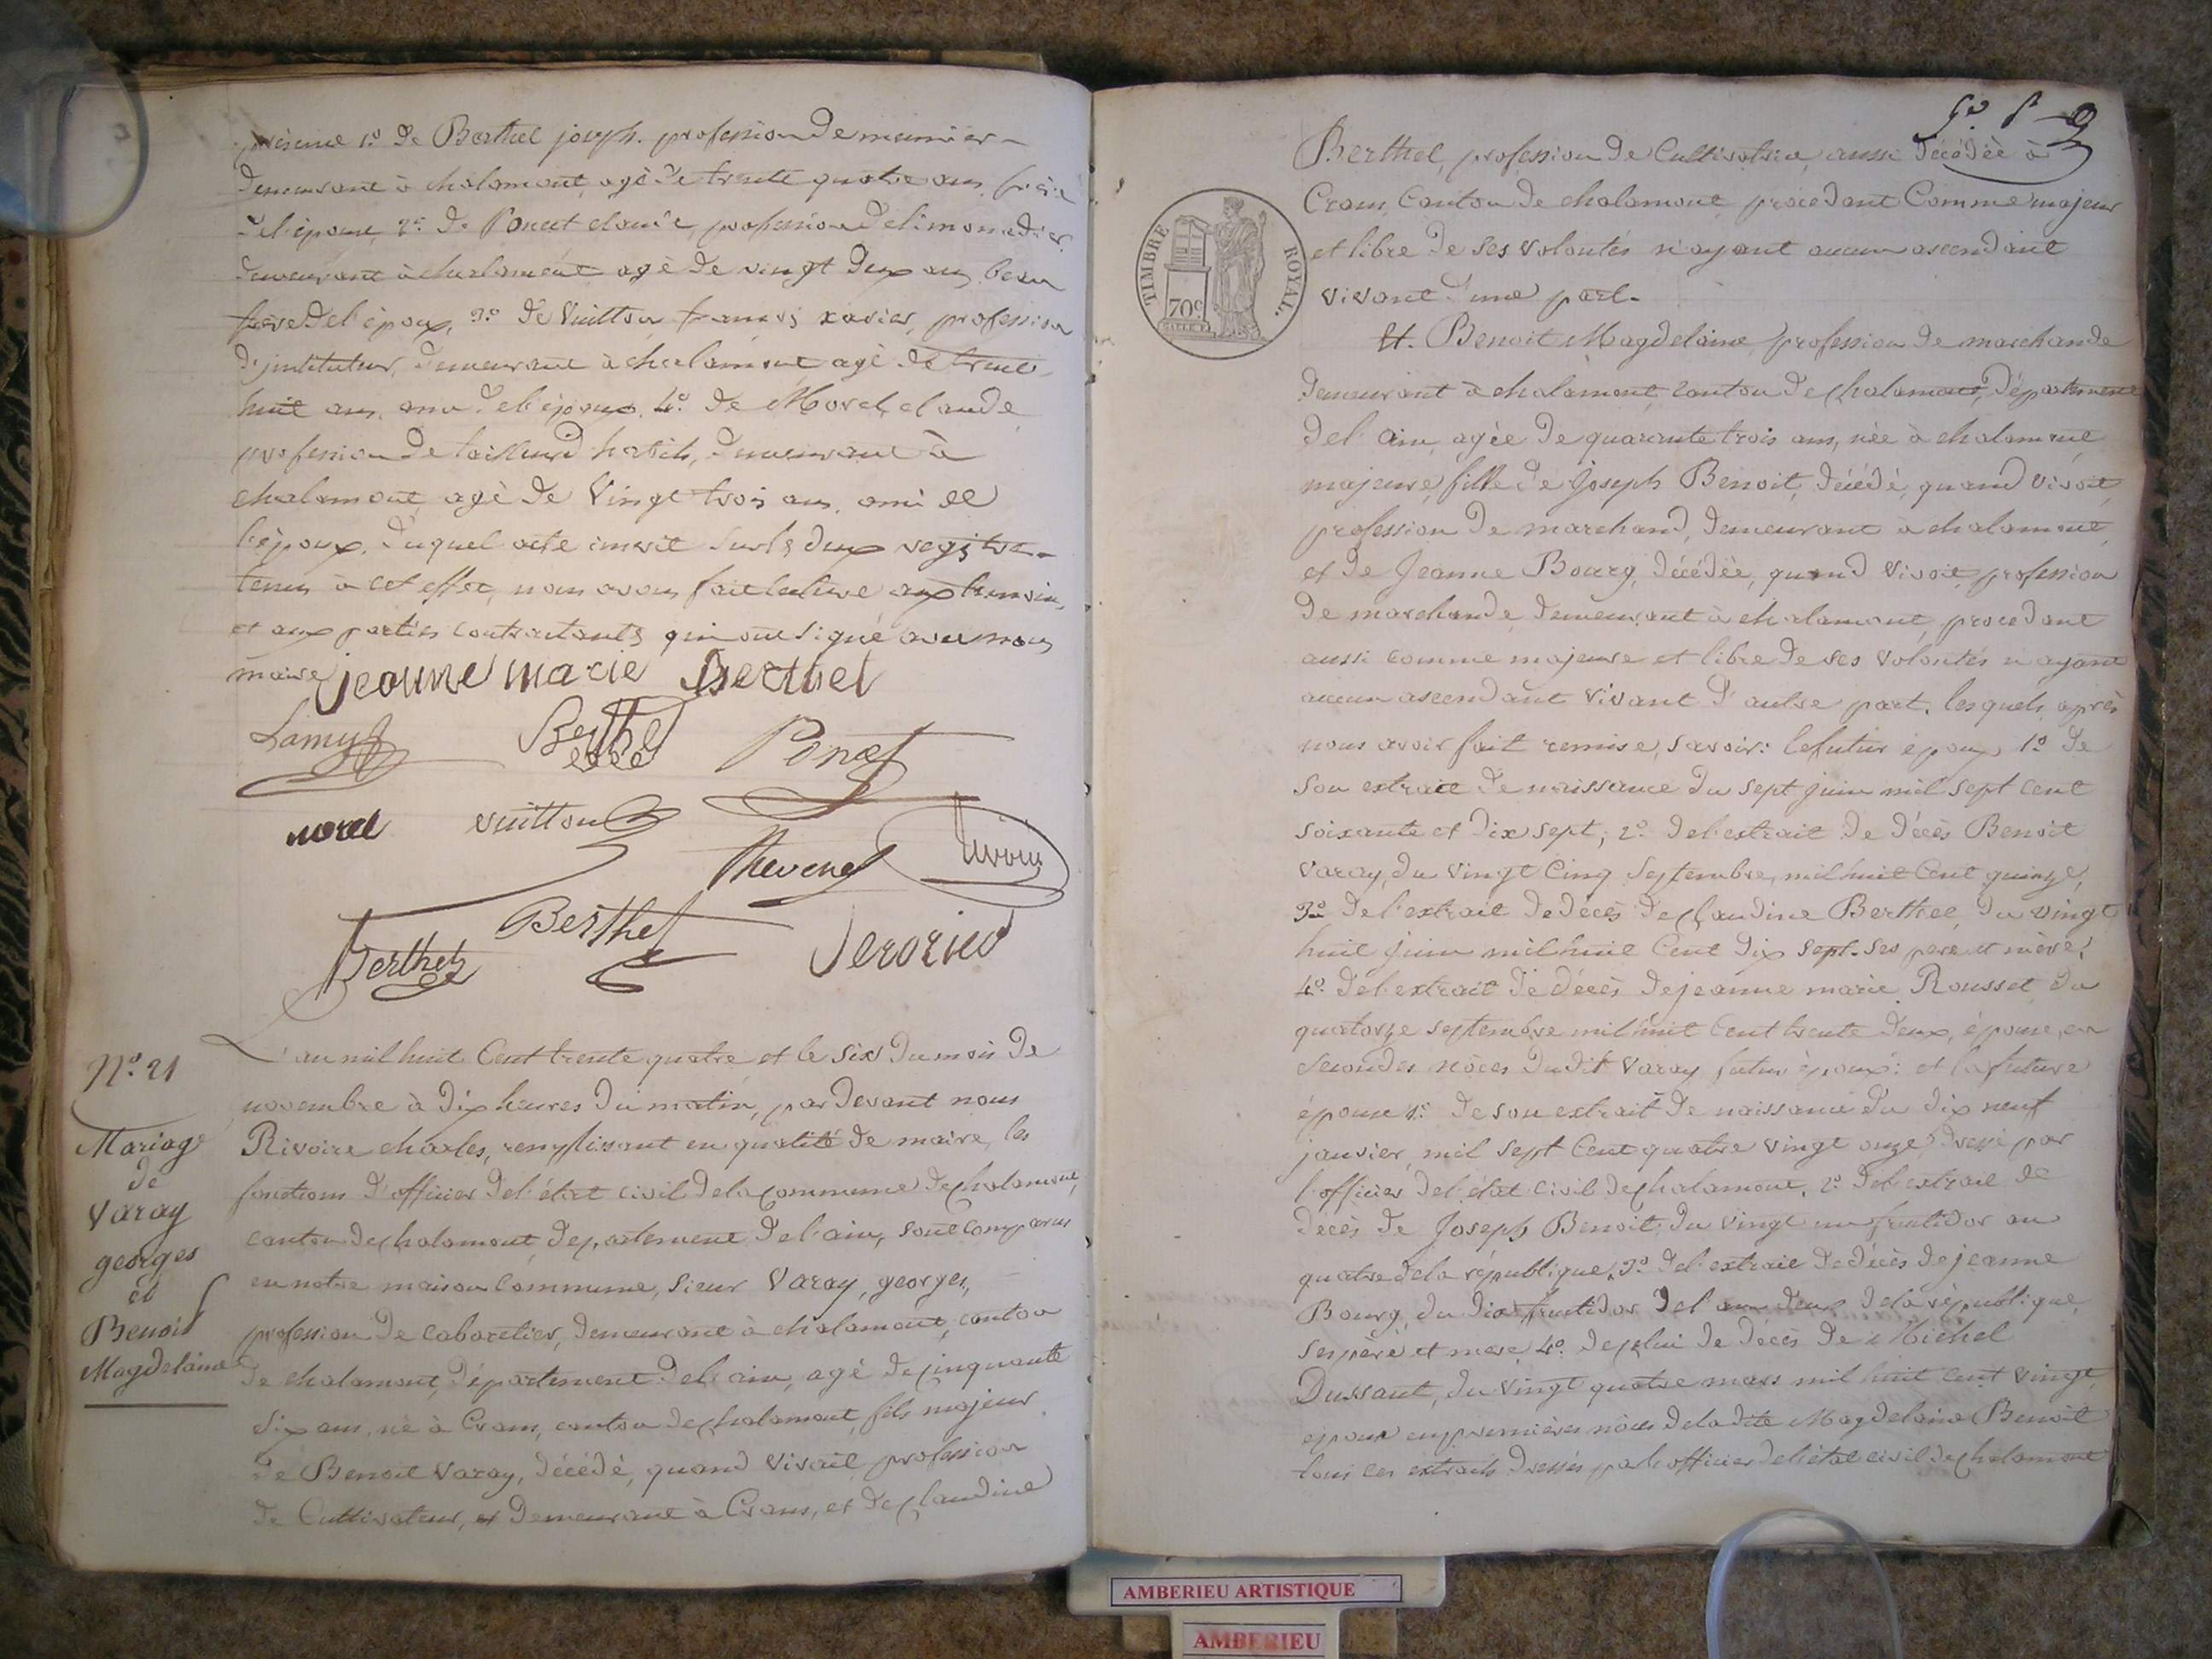 présence 1.o de Berthet joseph, profession de meunier
demeurant à chalamont, agé de trente quatre ans, frère
de l'épouse, 2.o de Poncet claude, profession de limonadier
demeurant à chalamont agé de vingt deux ans, beau
frère de l'époux, 3.o de Vuitton francois xavier, profession
d'jnstituteur, demeurant à chalamont agé de trente
huit ans, ami de l'époux, 4.o de Morel, claude
profession de tailleur d'habits, demeurant à
chalamont agé de Vingt trois ans, ami de
l'époux, duquel acte inscrit sur les deux registres
tenus à cet effet, nous avons fait lecture aux temoins,
et aux parties contractants qui ont signé avec nous
maire jeanne marie Berthet
Lamy Berthet Poncet
morel vuitton
Thevenet
Berthet
Berthet
N.o 21
Mariage
de
Varay
georges
et
Benoit
Magdelaine
L'an mil huit Cent trente quatre et le six du mois de
novembre à dix heures du matin, par devant nous
Rivoire charles, remplissant en qualité de maire, les
fonctions d'officier de l'état civil de la commune de chalamont,
canton de chalamont, departement de l'ain, sont comparus
en notre maison commune, sieur Varay, georges,
profession de cabaretier, demeurant à chalamont, canton
de chalamont, département de l'ain, agé de cinquante
six ans, né à Crans, canton de chalamont, fils majeur
de Benoit Varay, décédé, quand vivait, profession
de Cultivateur, et demeurant à Crans, et de claudine
Berthet, profession de Cultivatrice, aussi décédée à
Crans, Canton de chalamont, procedant Comme majeur
et libre de ses volontés n'ayant aucun ascendant
vivant d'une part.
TIMBRE ROYAL.
70c
Et Benoit Magdelaine, profession de marchande
demeurant à chalamont, canton de chalamont, département
de l'ain, agée de quarante trois ans, née à chalamont,
majeure, fille de Joseph Benoit, décédé, quand vivoit,
profession de marchand, demeurant à chalamont,
et de Jeanne Bourg, décédée, quand vivoit, profession
de marchande, demeurant à chalamont, procedant
aussi comme majeure et libre de ses volontés n'ayant
aucun ascendant vivant d'autre part, lesquels, après
nous avoir fait remise, savoir: le futur époux, 1.o de
son extrait de naissance du sept juin mil sept cent
soixante et dix sept; 2.o de l'extrait de décès Benoit
Varay, du vingt cinq septembre, mil huit Cent quinze,
3.o de l'extrait de décès de claudine Berthet, du vingt
huit juin mil huit Cent dix sept. ses père et mère;
4.o de l'extrait de décès de jeanne marie Rousset du
quatorze septembre mil huit Cent trente deux, épouse en
secondes nôces du dit Varay futur époux: et la future
épouse 1.o de son extrait de naissance du dix neuf
janvier, mil sept Cent quatre vingt onze dressé par
l'officier de l'état civil de chalamont, 2.o de l'extrait de
décès de Joseph Benoit, du vingt un fructidor an
quatre de la république, 3.o de l'extrait de décès de jeanne
Bourg, du dix fructidor de l'an deux de la république,
ses père et mere, 4.o de celui de décès de Michel
Dussant, du vingt quatre mars mil huit cent vingt,
epoux en premières nôces de la dite Magdelaine Benoit
tous ces extraits dressés par l'officier de l'état civil de chalamont
AMBERIEU ARTISTIQUE
AMBERIEU